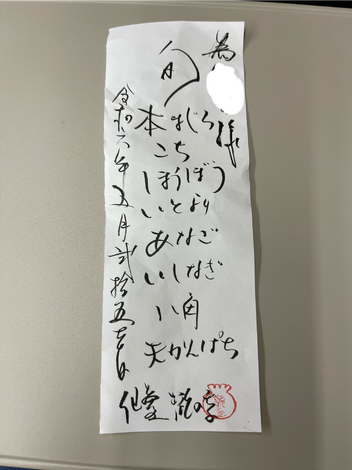 為
様
旬
本まぐろ
こち
ほうぼう
いとより
あなご
いしなぎ
八角
天かんぱち
令和六年五月弐拾五日
仙臺